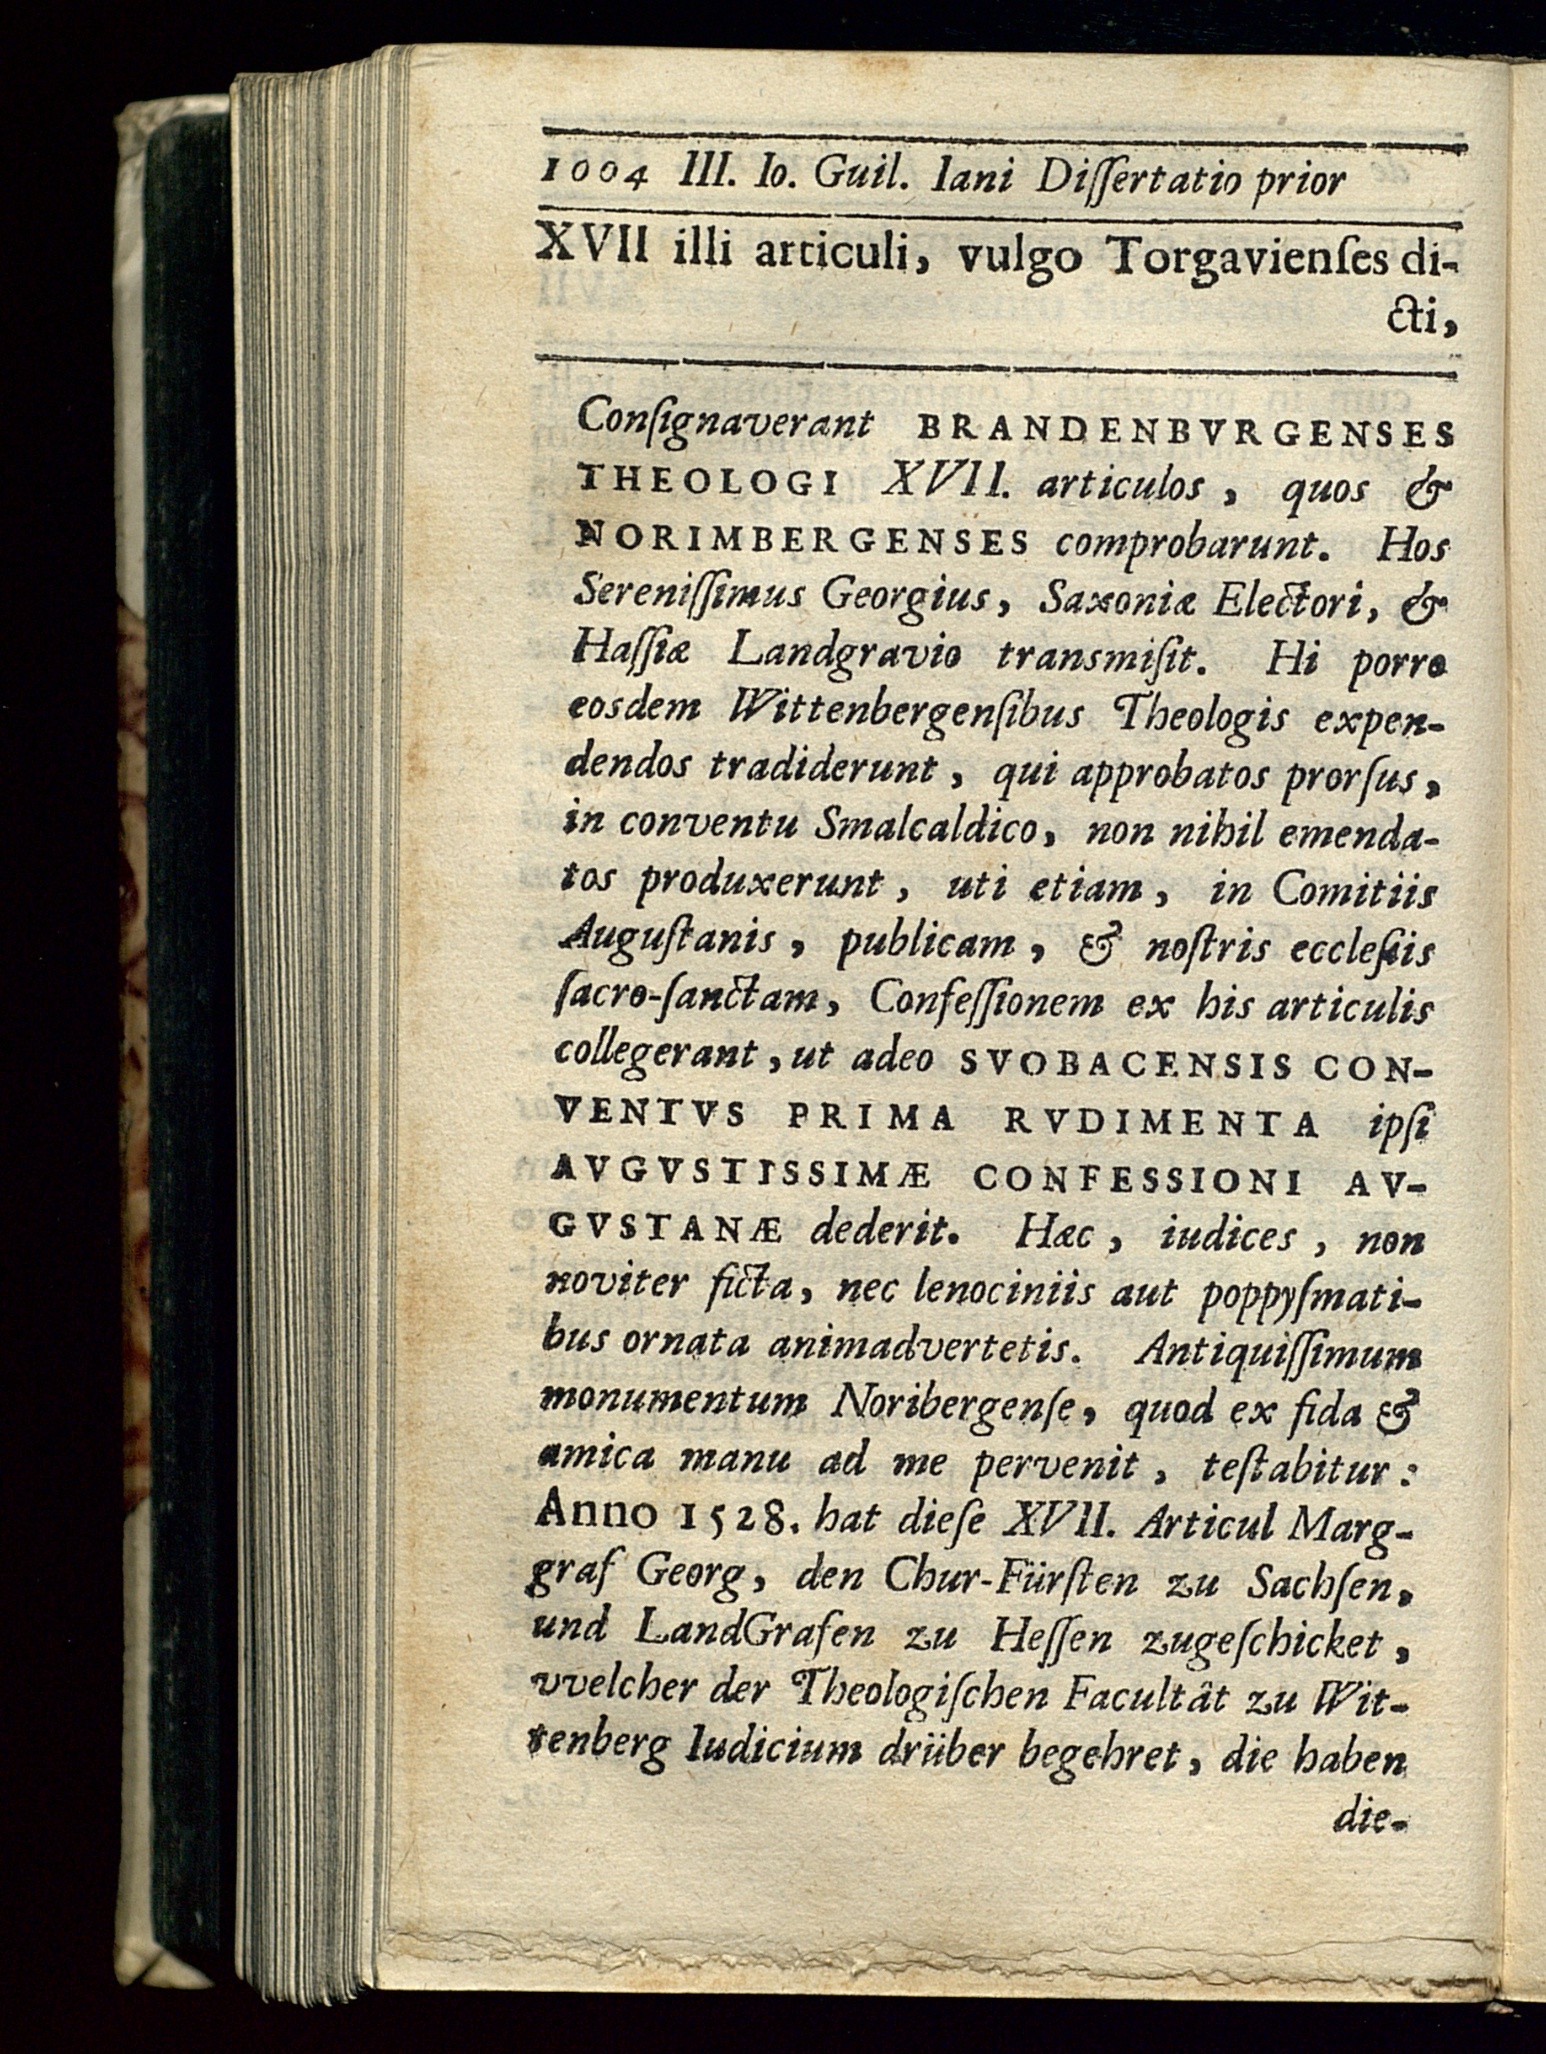 1004 III. Io. Guil. Iani Diſſertatio prior
XVII illi articuli, vulgo Torgavienſes di-
cti,
Conſignaverant BRANDENBVRGENSES
THEOLOGI XVII. articulos, quos &
NORIMBERGENSES comprobarunt. Hos
Sereniſſimus Georgius, Saxoniæ Electori, &
Haſſiæ Landgravio transmiſit. Hi porro
eosdem Wittenbergenſibus Theologis expen-
dendos tradiderunt, qui approbatos prorſus,
in conventu Smalcaldico, non nihil emenda-
tos produxerunt, uti etiam, in Comitiis
Auguſtanis, publicam, & noſtris eccleſiis
ſacro-ſanctam, Confeſſionem ex his articulis
collegerant, ut adeo SVOBACENSIS CON-
VENTVS PRIMA RVDIMENTA ipſi
AVGVSTISSIMÆ CONFESSIONI AV-
GVSTANÆ dederit. Hæc, iudices, non
noviter ficta, nec lenociniis aut poppyſmati-
bus ornata animadvertetis. Antiquiſſimum
monumentum Noribergenſe, quod ex fida &
amica manu ad me pervenit, teſtabitur:
Anno 1528. hat dieſe XVII. Articul Marg-
graf Georg, den Chur-Fürſten zu Sachſen,
und LandGrafen zu Heſſen zugeſchicket,
vvelcher der Theologiſchen Facultât zu Wit-
tenberg Iudicium drüber begehret, die haben
die-